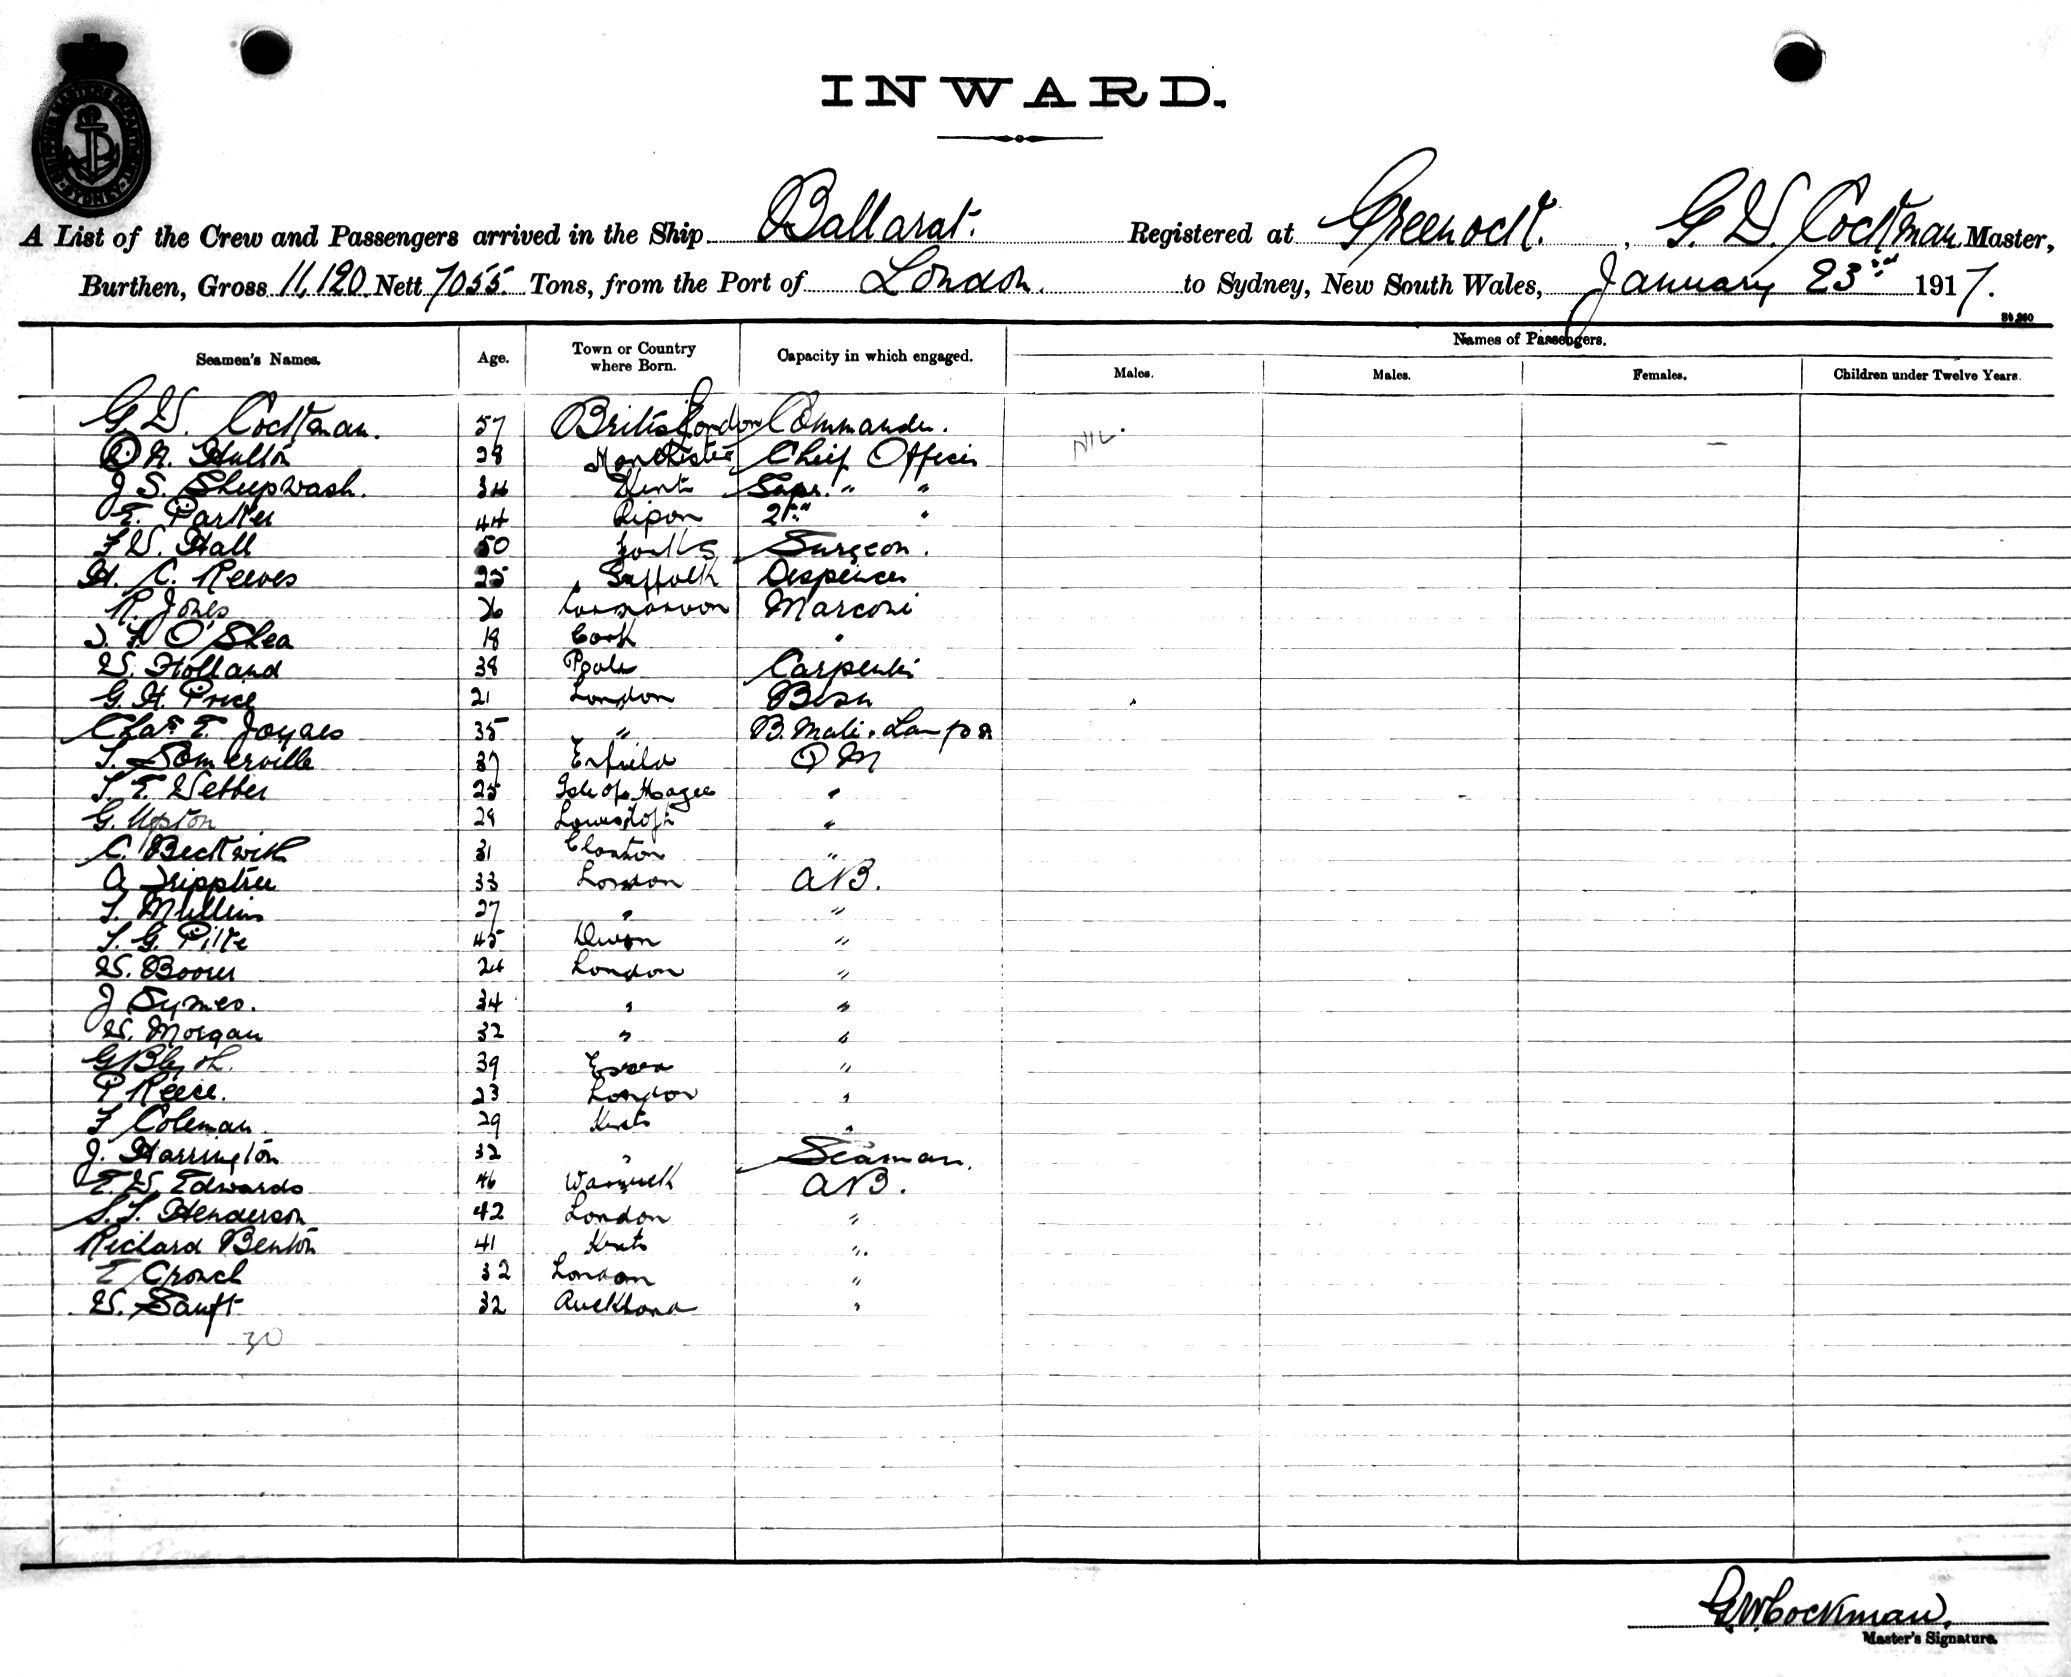 INWARD.
A List of the Crew and Passengers arrived in the Ship Ballarat. Registered at Greenock. , G. W. Cockman Master,
Burthen, Gross 11,120 Nett 7055 Tons, from the Port of London. to Sydney, New South Wales, January 23rd 1917.
Names of Passengers.
Seamen's Names. Age. Town or Country where Born. Capacity in which engaged. Males. Males. Females. Children under Twelve Years.
G. W. Cockman. 57 British London Commander. NIL.
A. Hulton 28 Manchester Chief Officer
J S. Sheepwash. 34 Supr. " "
E. Parker 44 Ripon 2nd "
F W. Hall 50 Surgeon.
H. C. Reeves 25 Suffolk Dispenser
R. Jones 26 Carnarvon Marconi
O'Shea 18 Cork "
W. Holland 38 Poole Carpenter
G. H. Price 21 London Bosn
Chas E. Joynes 35 " B. Mate & Lamps
T. Somerville 37 Enfield Q M
T. E. Webber 25 Isle of Magee "
G. Upton 29 Lowestoft "
C. Beckwith 31 Clacton "
A Tripptree 33 London AB.
T. Mullins 27 " "
T. G. Pike 45 Devon "
W. Boorer 24 London "
J Symes. 34 " "
W. Morgan 32 " "
G Blyth. 39 Essex "
P Reece. 23 London "
F Coleman. 29 Kent "
J. Harrington 32 " Seaman.
E. W. Edwards 46 Warwick AB.
S. T. Henderson 42 London "
Richard Benton 41 Kent "
E Crouch 32 London "
W. Sauft 32 Auckland "
30
G.W. Cockman,
Master's Signature.